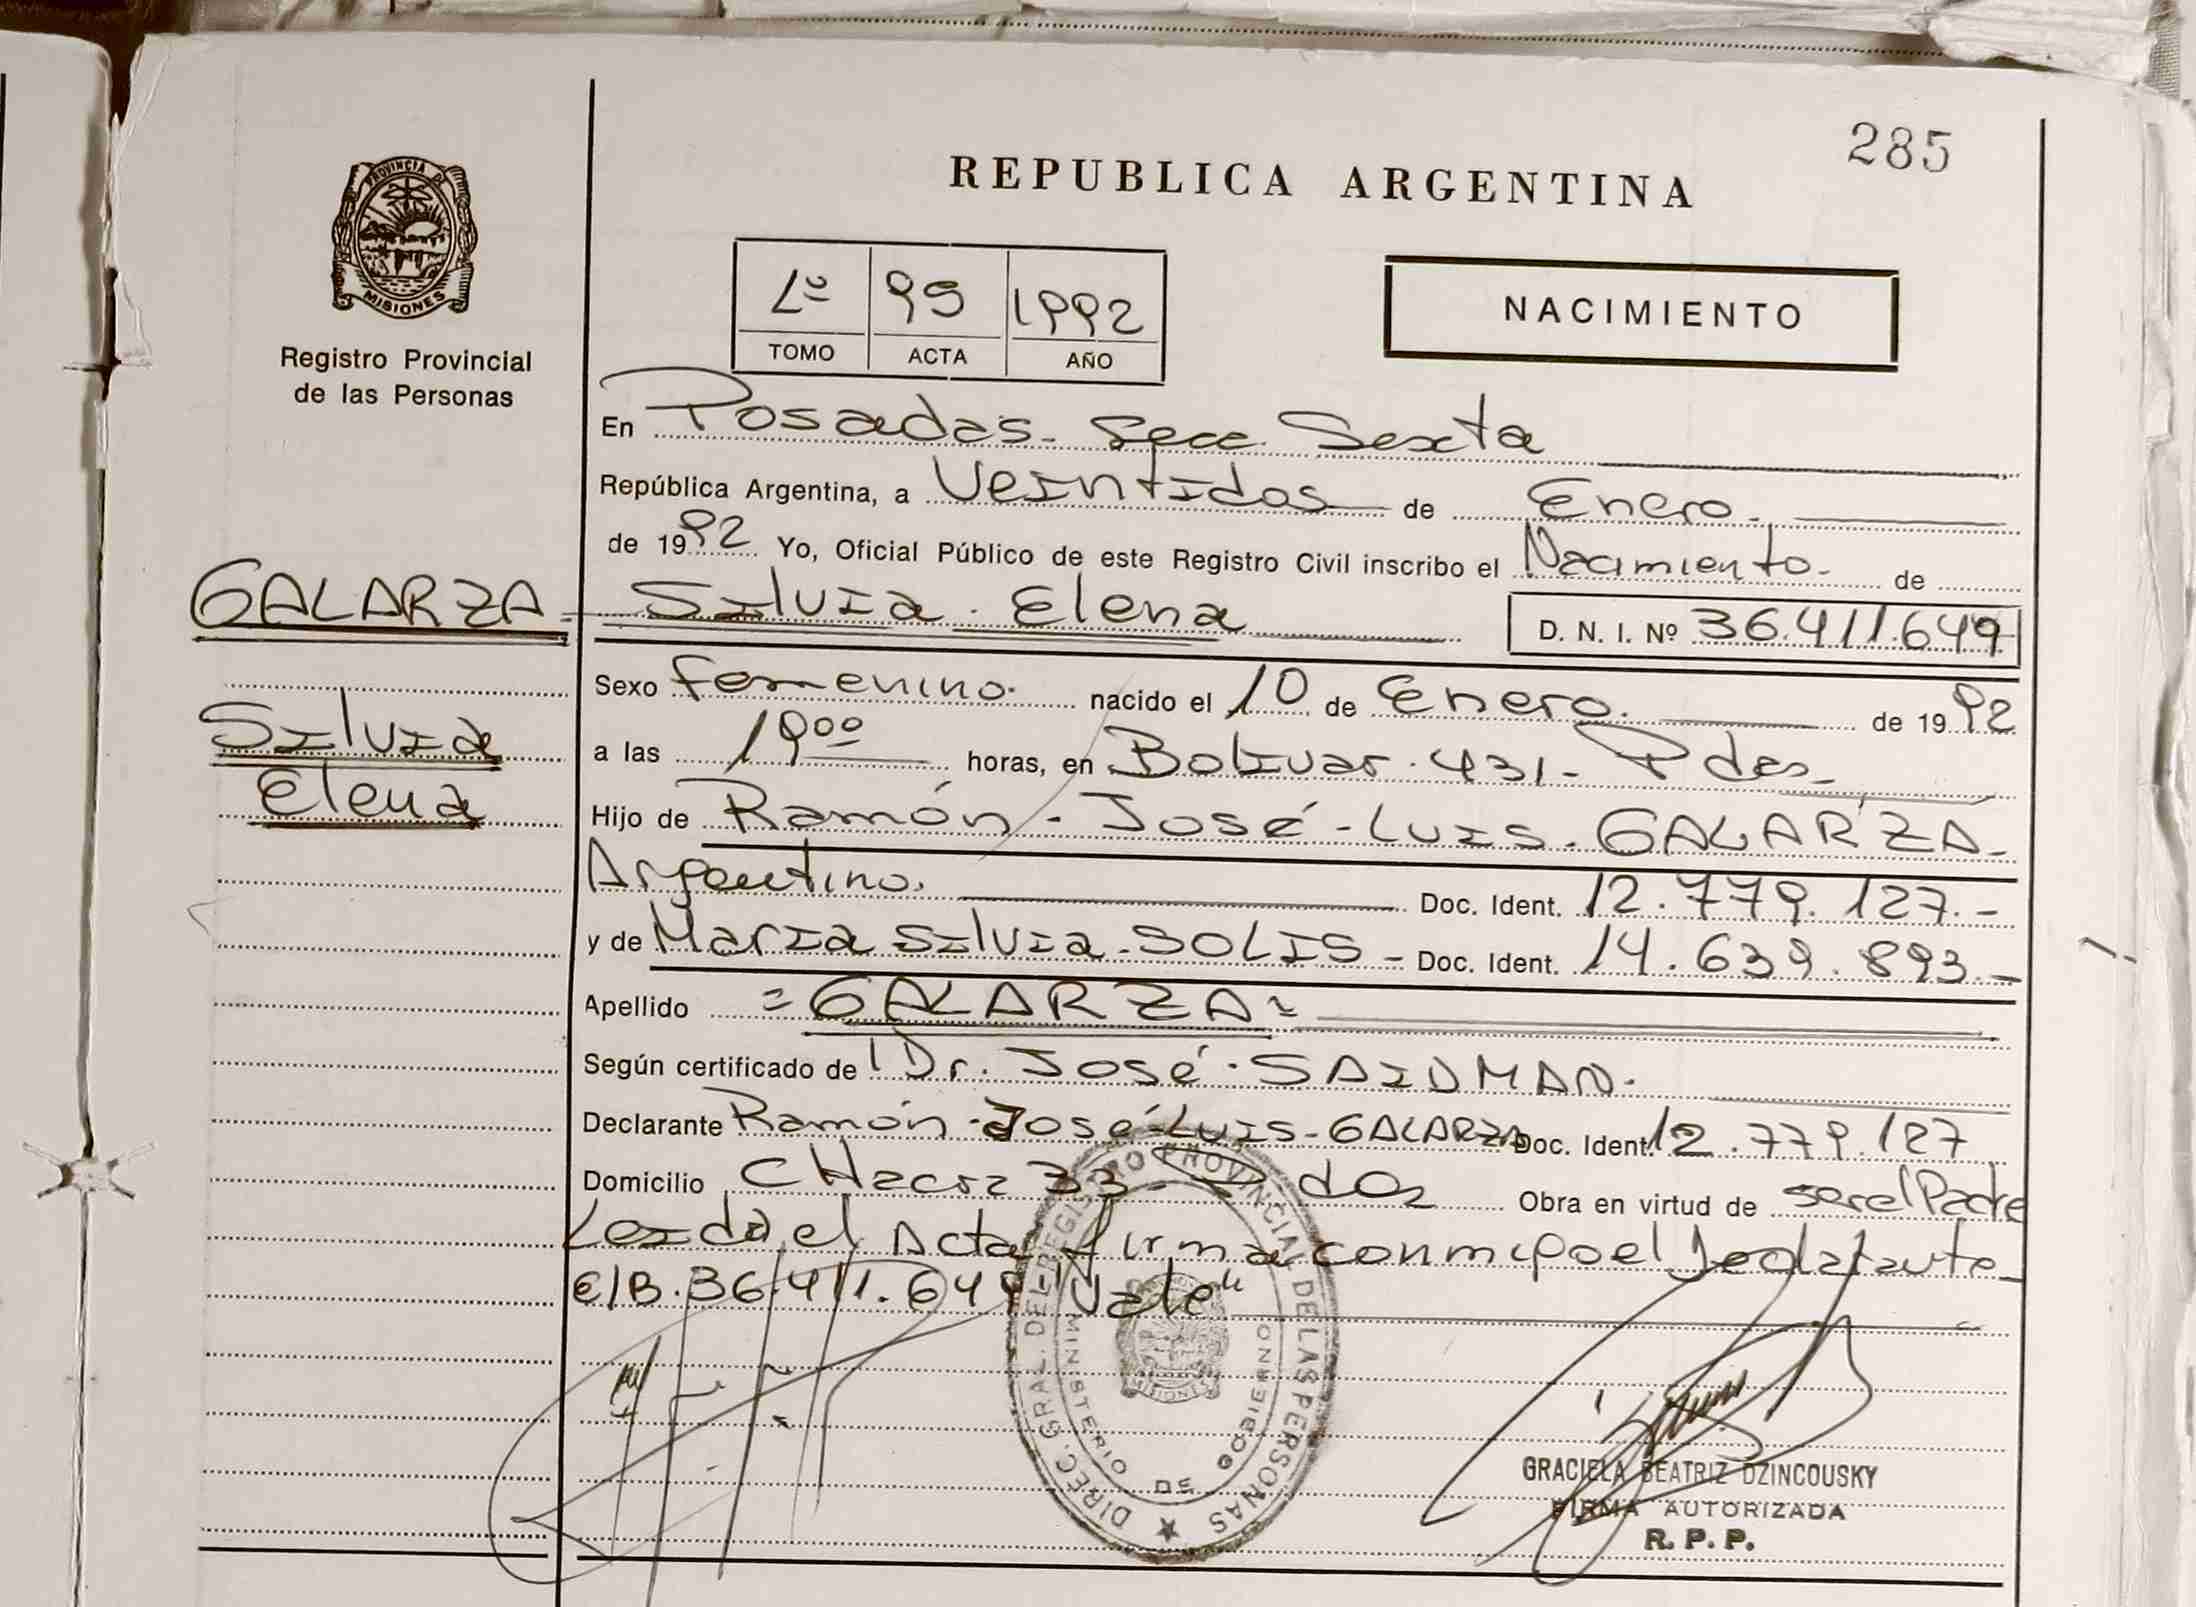 285
REPUBLICA ARGENTINA
PROVINCIA DE
MISIONES
Registro Provincial
de las Personas
Lº 99 1992
TOMO ACTA AÑO
NACIMIENTO
En Posadas - Secc. Sexta
República Argentina, a Veintidos de Enero.
de 1992 Yo, Oficial Público de este Registro Civil inscribo el Nacimiento - de
GALARZA - Silvia Elena
D. N. I. Nº 36.411.649
Silvia
Elena
Sexo femenino. nacido el 10 de Enero. de 1992
a las 19⁰⁰ horas, en Bolivar. 431 - Pdas
Hijo de Ramón - José - Luis. GALARZA -
Argentino. Doc. Ident. 12.779.127.-
y de Maria Silvia - SOLIS - Doc. Ident. 14.639.893.-
Apellido = GALARZA =
Según certificado de Dr. José. SAIDMAN.
Declarante Ramón - José - Luis - GALARZA Doc. Ident. 12.779.127
Domicilio CHacra 33 - Obra en virtud de ser el Padre
Leida el Acta firma conmigo el declarante
E/B. 36.411.649 "Vale"
DIREC. GRAL. DEL REGISTRO PROVINCIAL DE LAS PERSONAS
MINISTERIO DE GOBIERNO
MISIONES
GRACIELA BEATRIZ DZINCOUSKY
FIRMA AUTORIZADA
R. P. P.